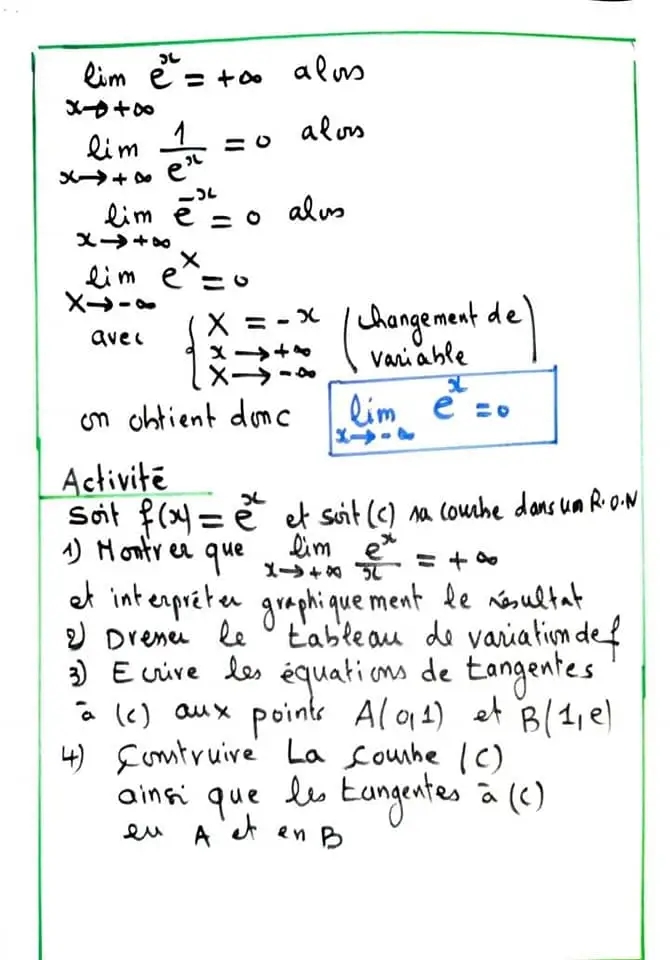 lim e^x = +∞ alors
x→+∞
lim 1/e^x = 0 alors
x→+∞
lim e^-x = 0 alors
x→+∞
lim e^X = 0
X→-∞
avec { X = -x (changement de
x→+∞ variable)
X→-∞
on obtient donc lim e^x = 0
x→-∞
Activité
Soit f(x) = e^x et soit (C) sa courbe dans un R.O.N
1) Montrer que lim e^x/x = +∞
x→+∞
et interpréter graphiquement le résultat
2) Dresser le tableau de variation de f
3) Ecrire les équations de tangentes
à (C) aux points A(0,1) et B(1,e)
4) Construire La courbe (C)
ainsi que les tangentes à (C)
en A et en B